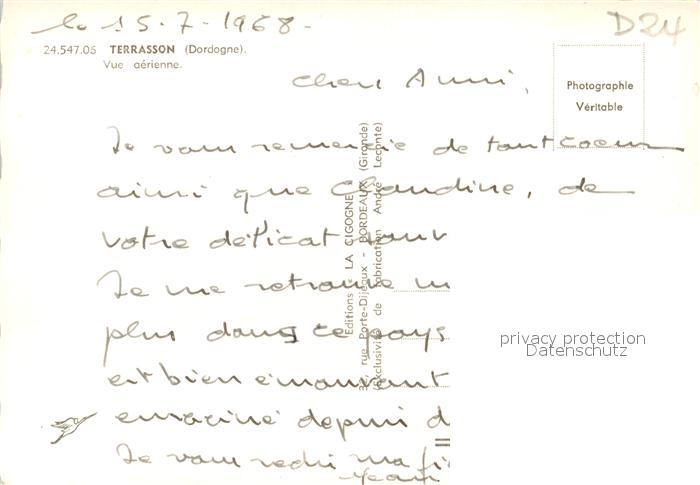 le 15.7-1968-
D24
24.547.05 TERRASSON (Dordogne).
Vue aérienne.
Photographie
Véritable
Cher Ami,
Je vous remercie de tout coeur
ainsi que Claudine, de
votre délicat souv
Je me retrouve
plus dans ce pays
est bien émouvant
enraciné depuis d
Je vous redis ma
Editions LA CIGOGNE
rue Porte-Dijeaux - BORDEAUX (Gironde)
(Exclusivité de fabrication André Leconte)
privacy protection
Datenschutz